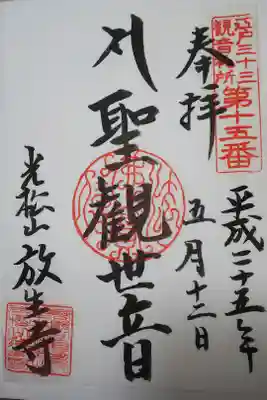 江戸三十三
観音札所
第十五番
奉拝
平成二十五年
五月十二日
聖観世音
光松山 放生寺